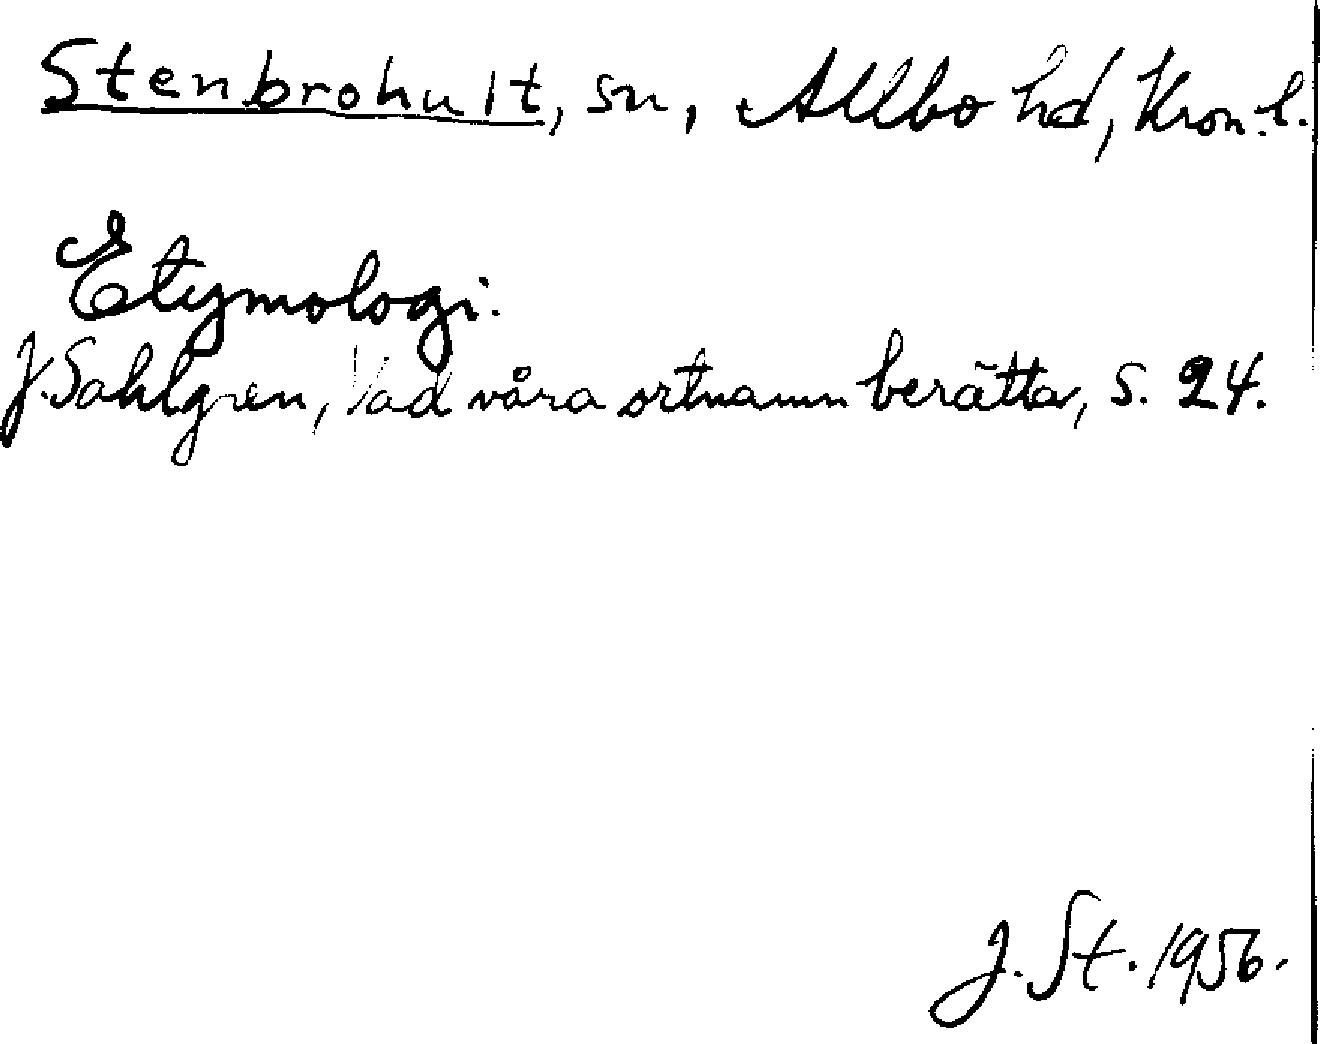 Stenbrohult, sn, Allbo hd, Kron. l.
Etymologi.
J. Sahlgren, Vad våra ortnamn berätta, s. 24.
J. St. 1956.